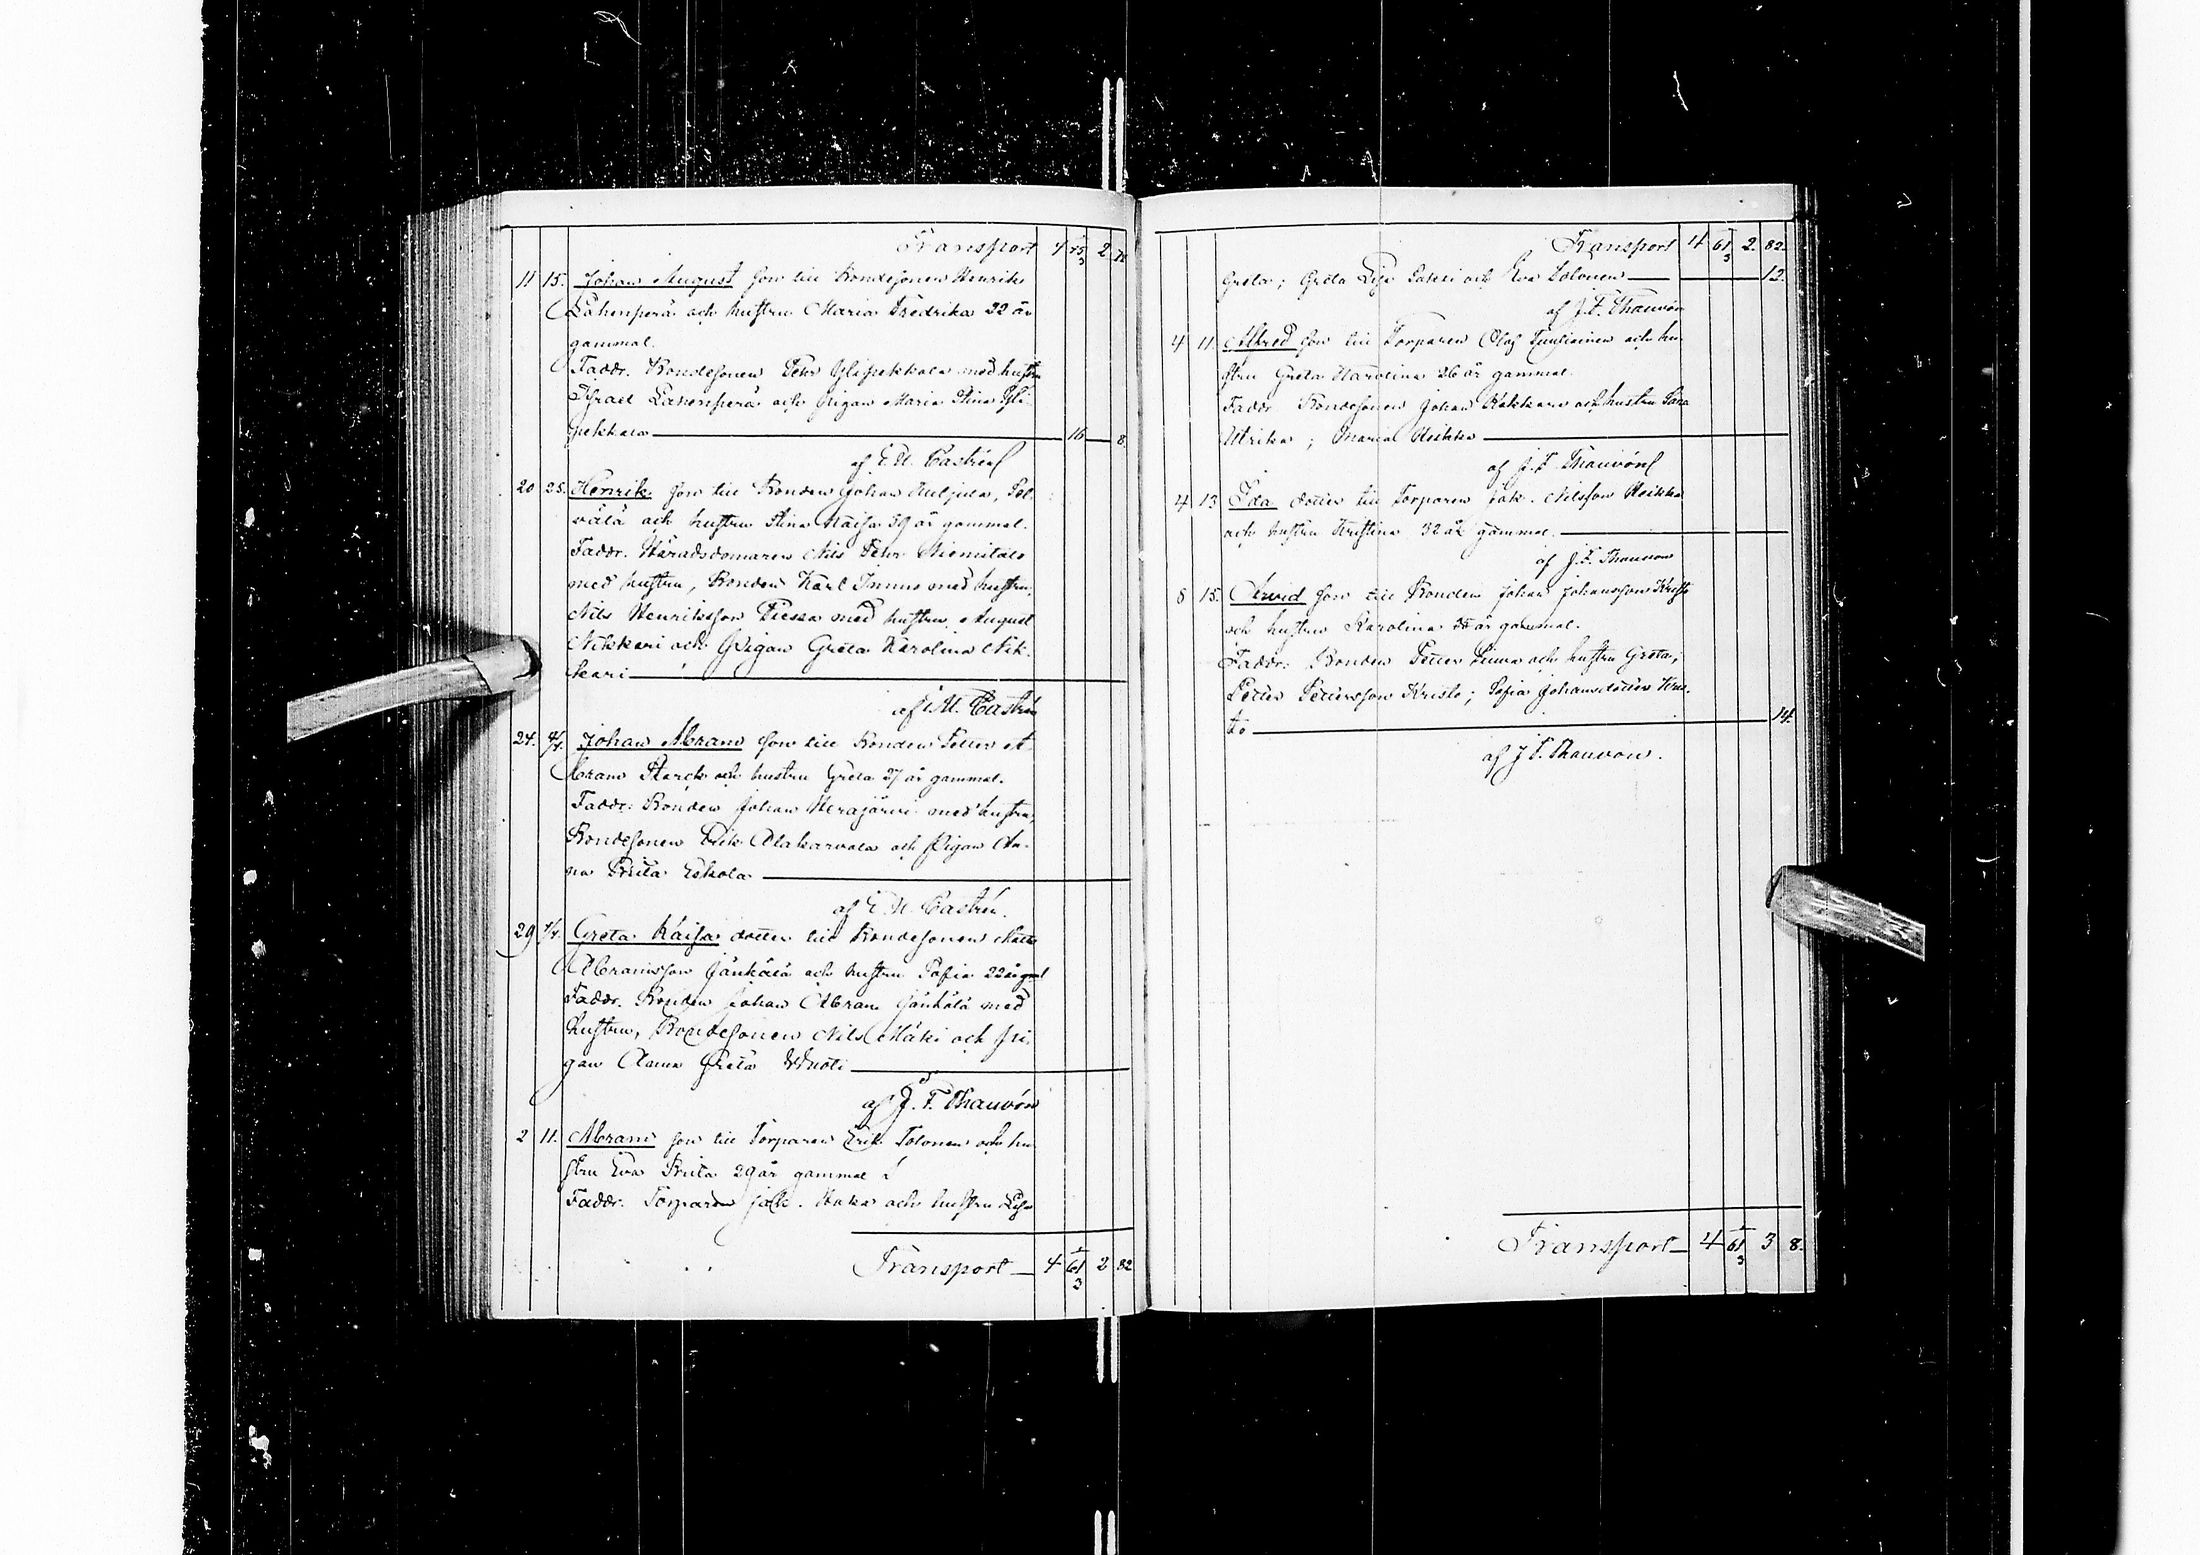 Transport 4 2
11 15. Johan August son till Bondesonen Henrik
Lähenperä och hustru Maria Fredrika 32 år
gammal.
Faddr. Bondesonen Pehr Ylipekkala med hustru
Israel Lähenperä och Pigan Maria Stina Yli-
pekkala 16 8
af E. N. Castrén
20 25. Henrik son till Bonden Johan
och hustru Stina Kaisa 39 år gammal.
Faddr. Häradsdomaren Nils Pehr Niemitalo
med hustru, Bonden Karl med hustru,
Nils Henriksson med hustru, August
Nikkari och Pigan Greta Karolina Nik-
kari
af Castrén
24. Johan Abram son till Bonden Petter A-
bram Starck och hustru Greta 27 år gammal.
Faddr: Bonden Johan Herajärvi med hustru,
Bondesonen Erik Alakarvala och Pigan An-
na Briita Eskola
af E. N. Castrén.
29 Greta Kaisa dotter till Bondesonen Matts
Abramsson Jänkälä och hustru Sofia 22 år gml
Faddr. Bonden Johan Abram Jänkälä med
hustru, Bondesonen Nils Mäki och Pi-
gan Anna Greta
af J. F. Thauvón
2 11. Abram son till Torparen Erik Tolonen och hu-
stru Eva Briita 29 år gammal
Faddr. Torparen Jak. och hustru Lisa
Transport 4 61 3 2 82
Transport 4 61 3 2. 82.
Greta; Greta Lisa och Eva Tolonen 12.
af J. F. Thauvón
4 11. Alfred son till Torparen Olof och hu-
stru Greta Karolina 26 år gammal.
Faddr. Bondesonen Johan och hustru Sara
Ulrika; Maria Heikka
af J. F. Thauvón
4 13 Ida dotter till Torparen Jak. Nilsson Heikka
och hustru Kristina 32 år gammal.
af J. F. Thauvón
8 15. Arvid son till Bonden Johan Johansson Kristo
och hustru Karolina 35 år gammal.
Faddr: Bonden Petter och hustru Greta;
Petter Pettersson Kristo; Sofia Johansdotter Kris-
to 14.
af J. F. Thauvón.
Transport 4 61 3 3 8.